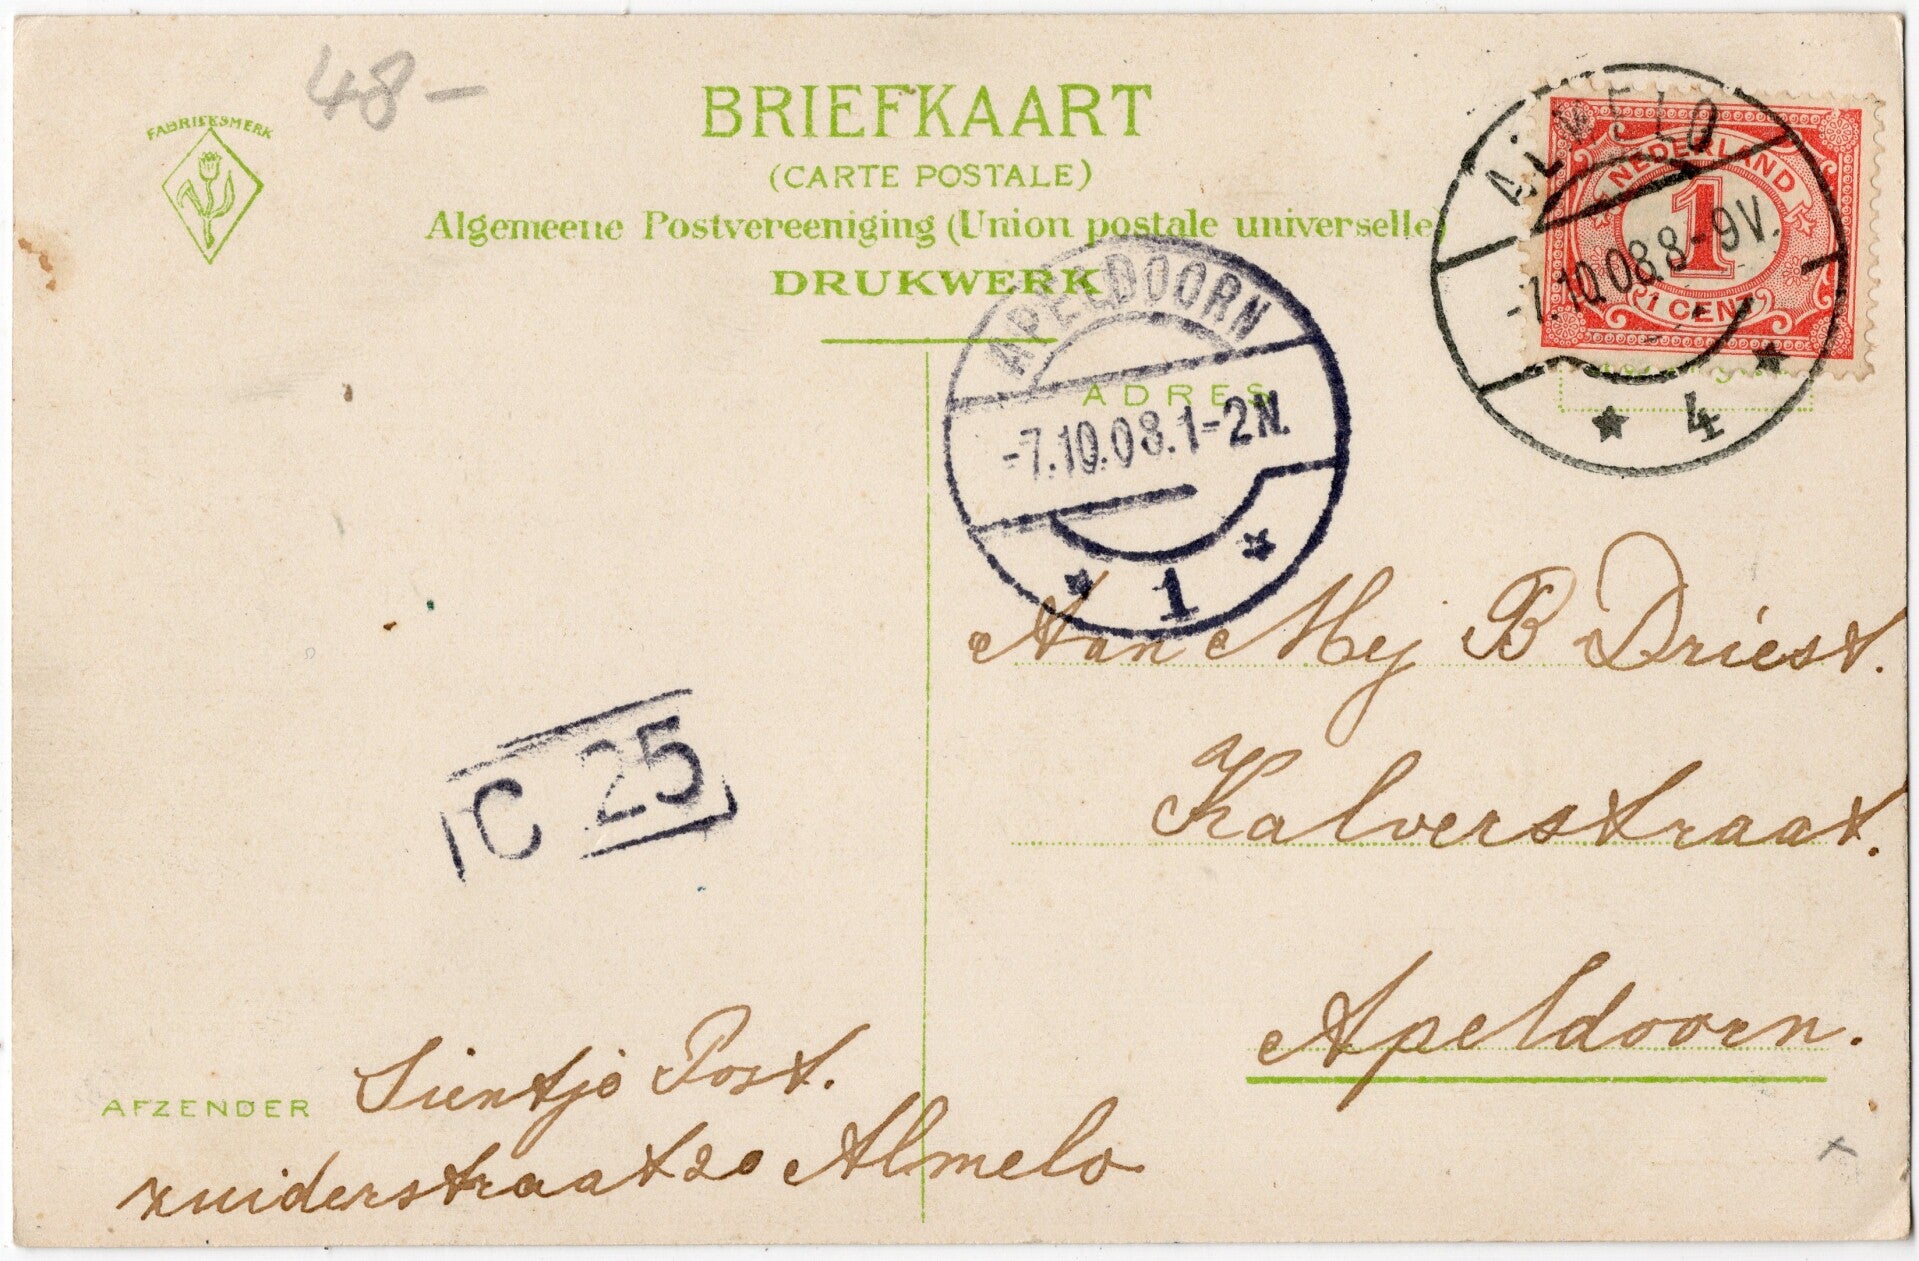 48-
FABRIEKSMERK
BRIEFKAART
(CARTE POSTALE)
Algemeene Postvereeniging (Union postale universelle)
DRUKWERK
ALMELO
-7.10.08.8-9V.
4
NEDERLAND
1
1 CENT
APELDOORN
-7.10.08.1-2N.
1
ADRES
Aan Mej B Driest.
Kalverstraat.
Apeldoorn.
C 25
AFZENDER Sientje Post.
zuiderstraat 20 Almelo